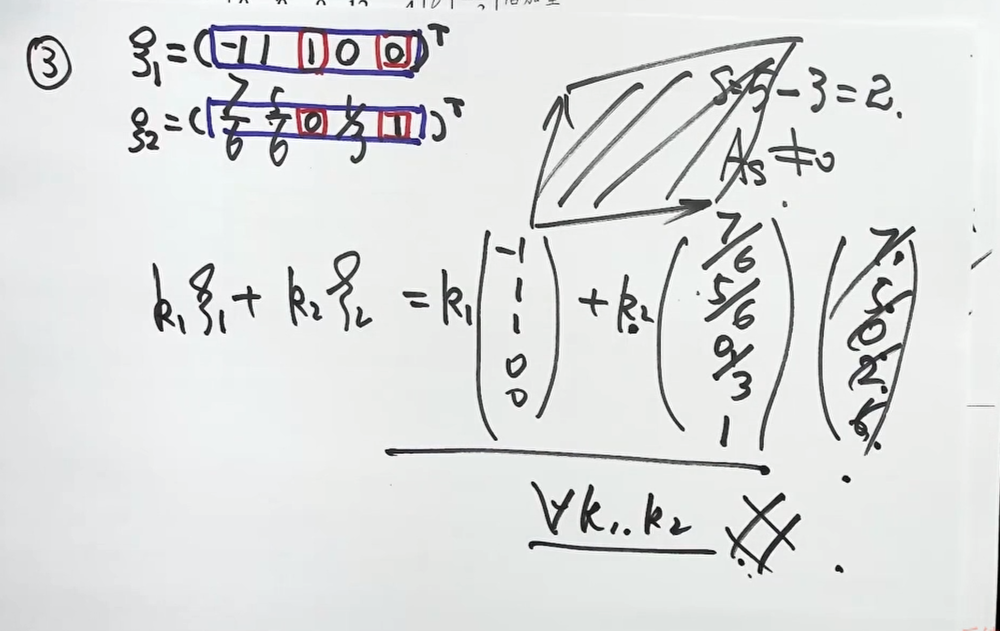 ③ ξ₁=(-1 1 1 0 0)ᵀ
ξ₂=(7/6 5/6 0 1/3 1)ᵀ
S=5-3=2.
Aξ≠0
k₁ξ₁+k₂ξ₂=k₁(-1 1 1 0 0)+k₂(7/6 5/6 0 1/3 1) (7 5 0 2 6)
∀k₁..k₂